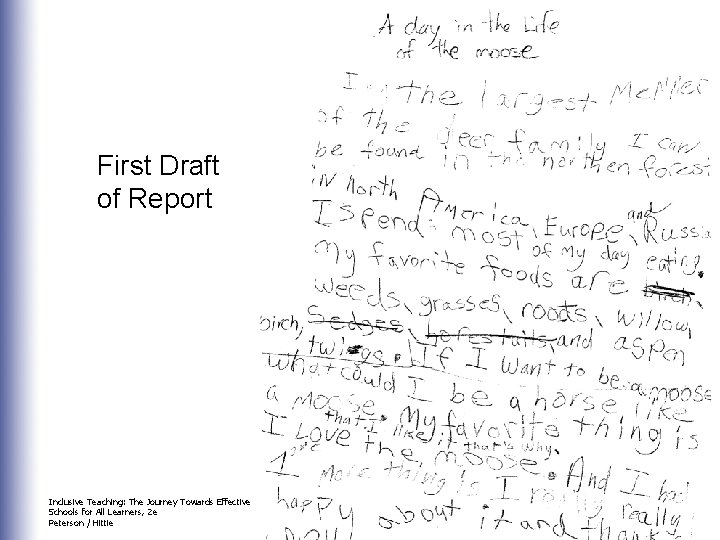 First Draft
of Report
A day in the Life
of the moose
I'm the largest MeMber
of the deer family I can
be found in the northen forest
iN North America, Europe, and Russia
I spend most of My day eating.
My favorite foods are birch,
weeds, grasses, roots, willow,
birch, Sedges, horestails, and aspen
twings. If I want to be a moose
what could I be a horse like
a moose. My favorite thing is
that I like it that's why.
I Love the moose. And I had
1 one more thing is I really really
happy about it and thank
Inclusive Teaching: The Journey Towards Effective
Schools for All Learners, 2e
Peterson / Hittie